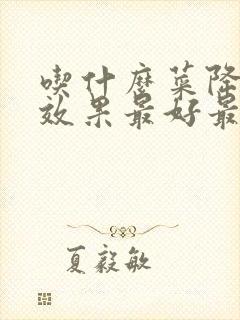 喫什麼菜降
效果最好最
夏毅敏